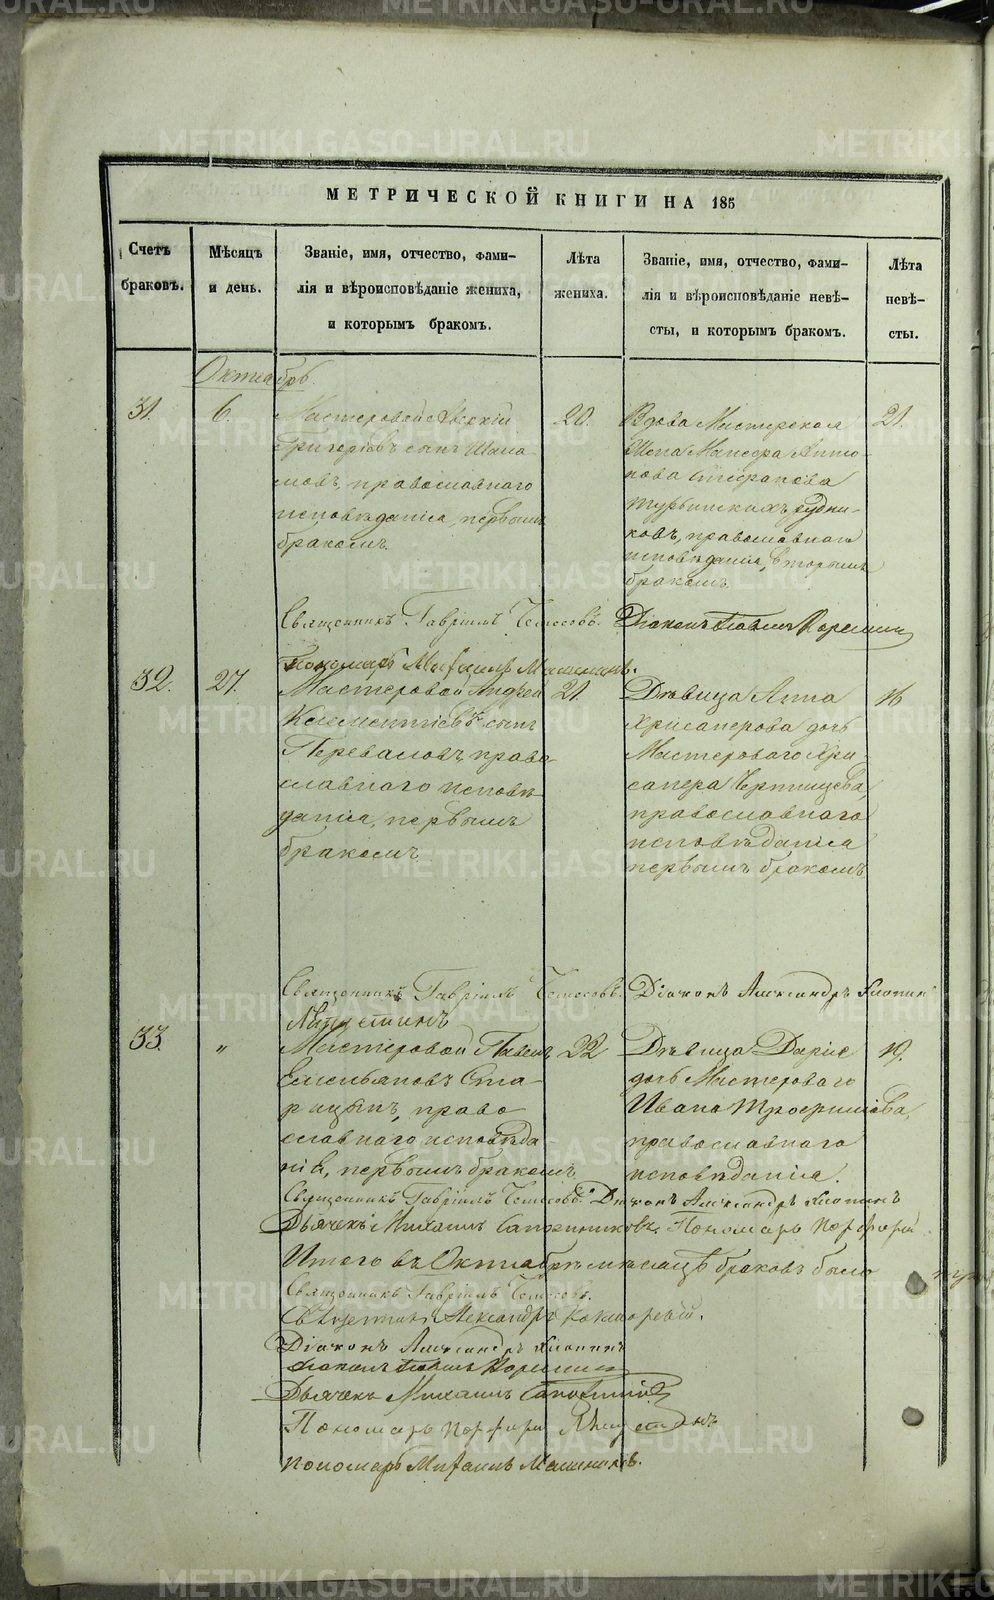 МЕТРИЧЕСКОЙ КНИГИ НА 185
Счетъ браковъ.
Мѣсяцъ и день.
Званіе, имя, отчество, фами-
лія и вѣроисповѣданіе жениха,
и которымъ бракомъ.
Лѣта
жениха.
Званіе, имя, отчество, фами-
лія и вѣроисповѣданіе невѣ-
сты, и которымъ бракомъ.
Лѣта
невѣ-
сты.
Октябрь.
31.
6.
Мастеровой
Григоріевъ сынъ
православнаго
исповѣданія, первымъ
бракомъ.
20.
Вдова Мастерская
Жена Анто-
нова
Турьинскихъ рудни-
ковъ, православнаго
исповѣданія, вторымъ
бракомъ.
21.
Священникъ Гавріилъ Діаконъ Павелъ
Пономарь Михаилъ
32.
27.
Мастеровой Андрей
Клементіевъ сынъ
Переваловъ, право-
славнаго исповѣ-
данія, первымъ
бракомъ.
21.
Дѣвица Анна
Хрисанфова дочь
Мастероваго Хри-
санфа
православнаго
исповѣданія
первымъ бракомъ
16
Священникъ Гавріилъ Діаконъ Александръ
33.
"
Мастеровой Павелъ
Емельяновъ Ста-
рицынъ, право-
славнаго исповѣда
нія, первымъ бракомъ,
22
Дѣвица Дарія
дочь Мастероваго
Ивана Трофимова,
православнаго
исповѣданія.
19.
Священникъ Гавріилъ Діаконъ Александръ
Дьячекъ Михаилъ Сапожниковъ. Пономарь Порфирій
Итого въ Октябрѣ мѣсяцѣ браковъ было
Священникъ Гавріилъ
Священникъ Александръ
Діаконъ Александръ
Діаконъ Павелъ
Дьячекъ Михаилъ
Пономарь Порфирій
Пономарь Михаилъ
METRIKI.GASO-URAL.RU